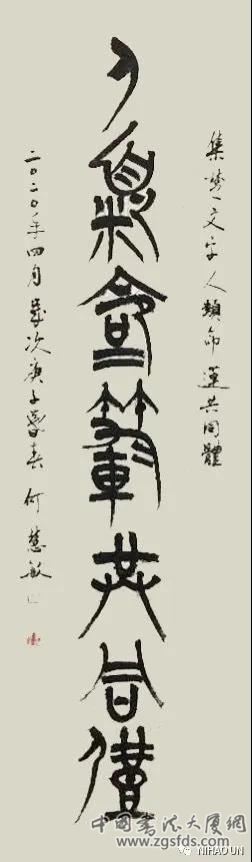 集楚文字人類命運共同體
人類命運共同體
二〇二〇年四月歲次庚子暮春何慧敏
中國書法大厦網
www.zgsfds.com
NIHAOUN